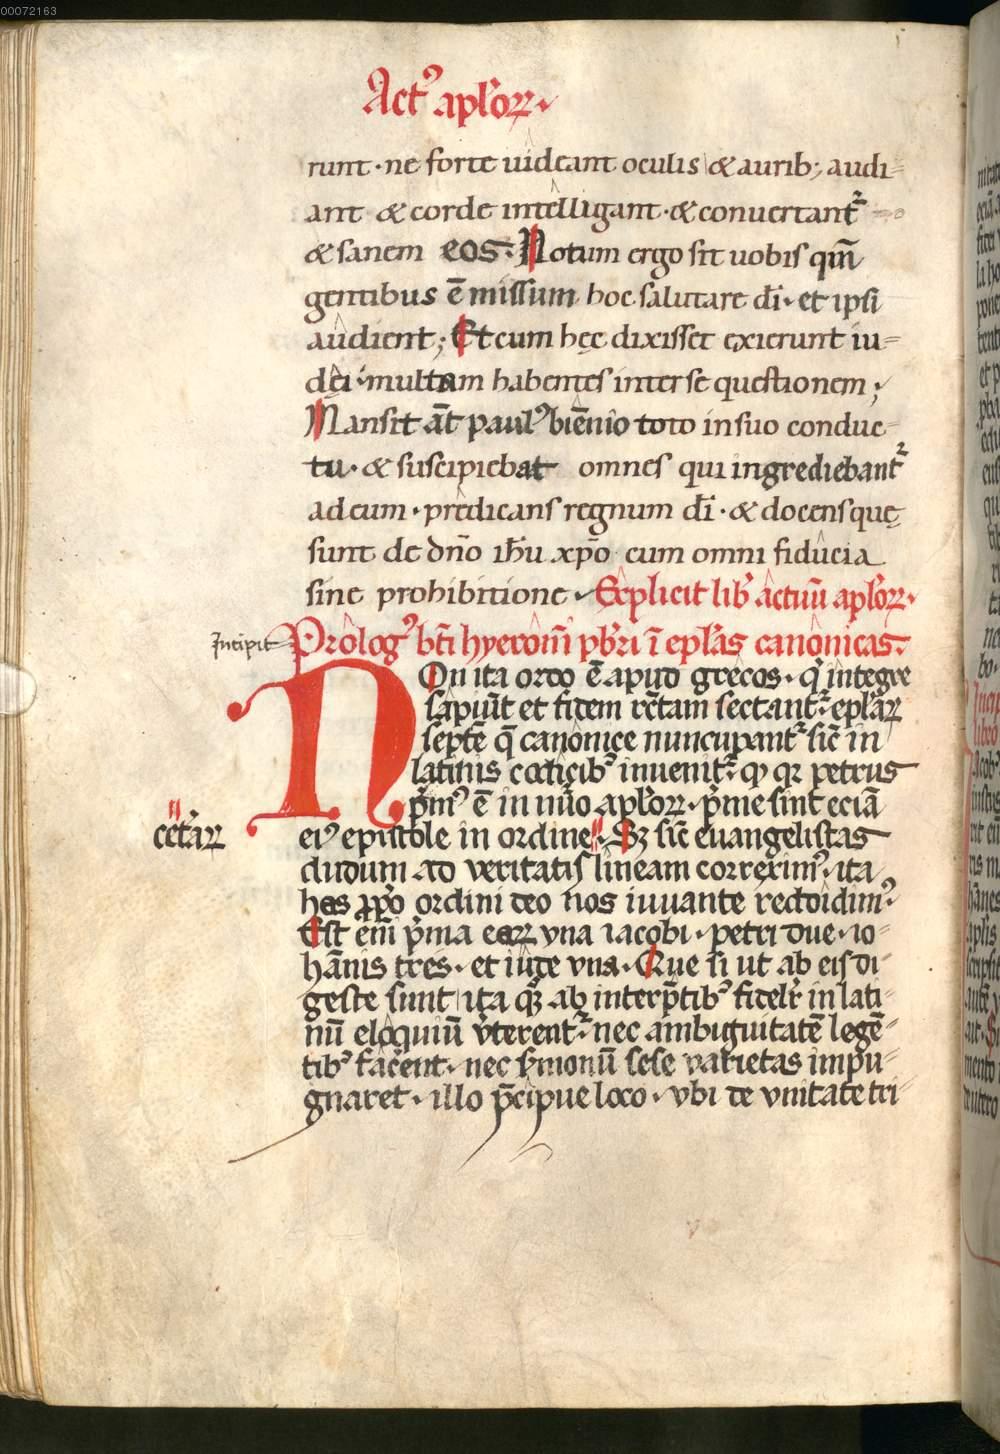 00072163
Actꝰ apl'oꝝ.
runt · ne forte uideant oculis & aurib; audi-
ant & corde intelligant · & conuertant᷑
& sanem eos · Notum ergo sit uobis qm̅
gentibus e̅ missum hoc salutare di̅ · et ipsi
audient; Et cum hec dixisset exierunt iu-
dęi · multam habentes inter se questionem;
Mansit aū̅t paulꝰ bie̅nio toto in suo conduc-
tu · & suscipiebat omnes qui ingrediebant᷑
ad eum · predicans regnum di̅ · & docens quę
sunt de dn̅o ih̅u xp̅o cum omni fiducia
sine prohibitione · Explicit lib' actuu̅ apl'oꝝ ·
Incipit Prologꝰ bt̅i hyeronim̅ pb'ri i̅ epl'as canonicas ·
Non ita ordo e̅ apud grecos · q' integre
sapiu̅t et fidem rc̅tam sectant᷑ · epl'aꝝ
septe̅ q̅ canonice nuncupant᷑ sic̅ in
latinis codicibꝰ inuenit᷑ · qꝫ qꝛ petrus
p'mꝰ e̅ in nu̅o apl'oꝝ · p'me sint ecia̅
eiꝰ epistole in ordine · Sꝫ sic̅ euangelistas
cet'aꝝ
dudum ad veritatis lineam correximꝰ · ita
has ꝓp'o ordini deo nos iuuante reddidimꝰ
Est eni̅ p'ma eaꝝ vna iacobi · petri due · io-
ha̅nis tres · et iude vna · Que si ut ab eis di-
geste sunt ita qꝫ ab interp̅tibꝰ fidelr̅ in lati-
nu̅ eloquiu̅ v'terent᷑ · nec ambiguitate̅ lege̅-
tibꝰ fac'ent · nec s'monu̅ sese varietas impu-
gnaret · illo p̅cipue loco · vbi de vnitate tri-